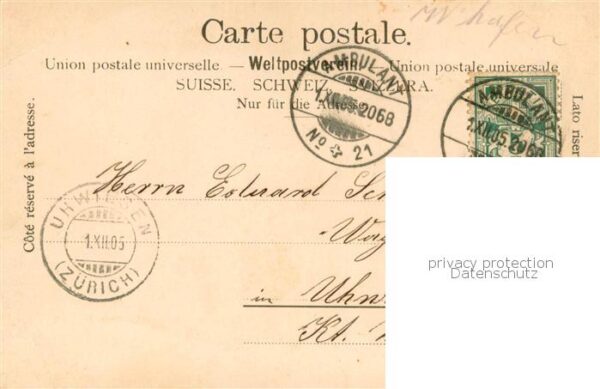 Whafen
Carte postale.
Union postale universelle — Weltpostverein — Union postale universale
SUISSE. SCHWEIZ. SVIZZERA.
Nur für die Adresse.
Côté réservé à l'adresse.
Lato riser
AMBULANT
1.XII.05.2068
No 21
AMBULANT
1.XII.05.2068
UHWIESEN
1.XII.05
(ZÜRICH)
Herrn Eduard
in Uhw
Kt.
privacy protection
Datenschutz